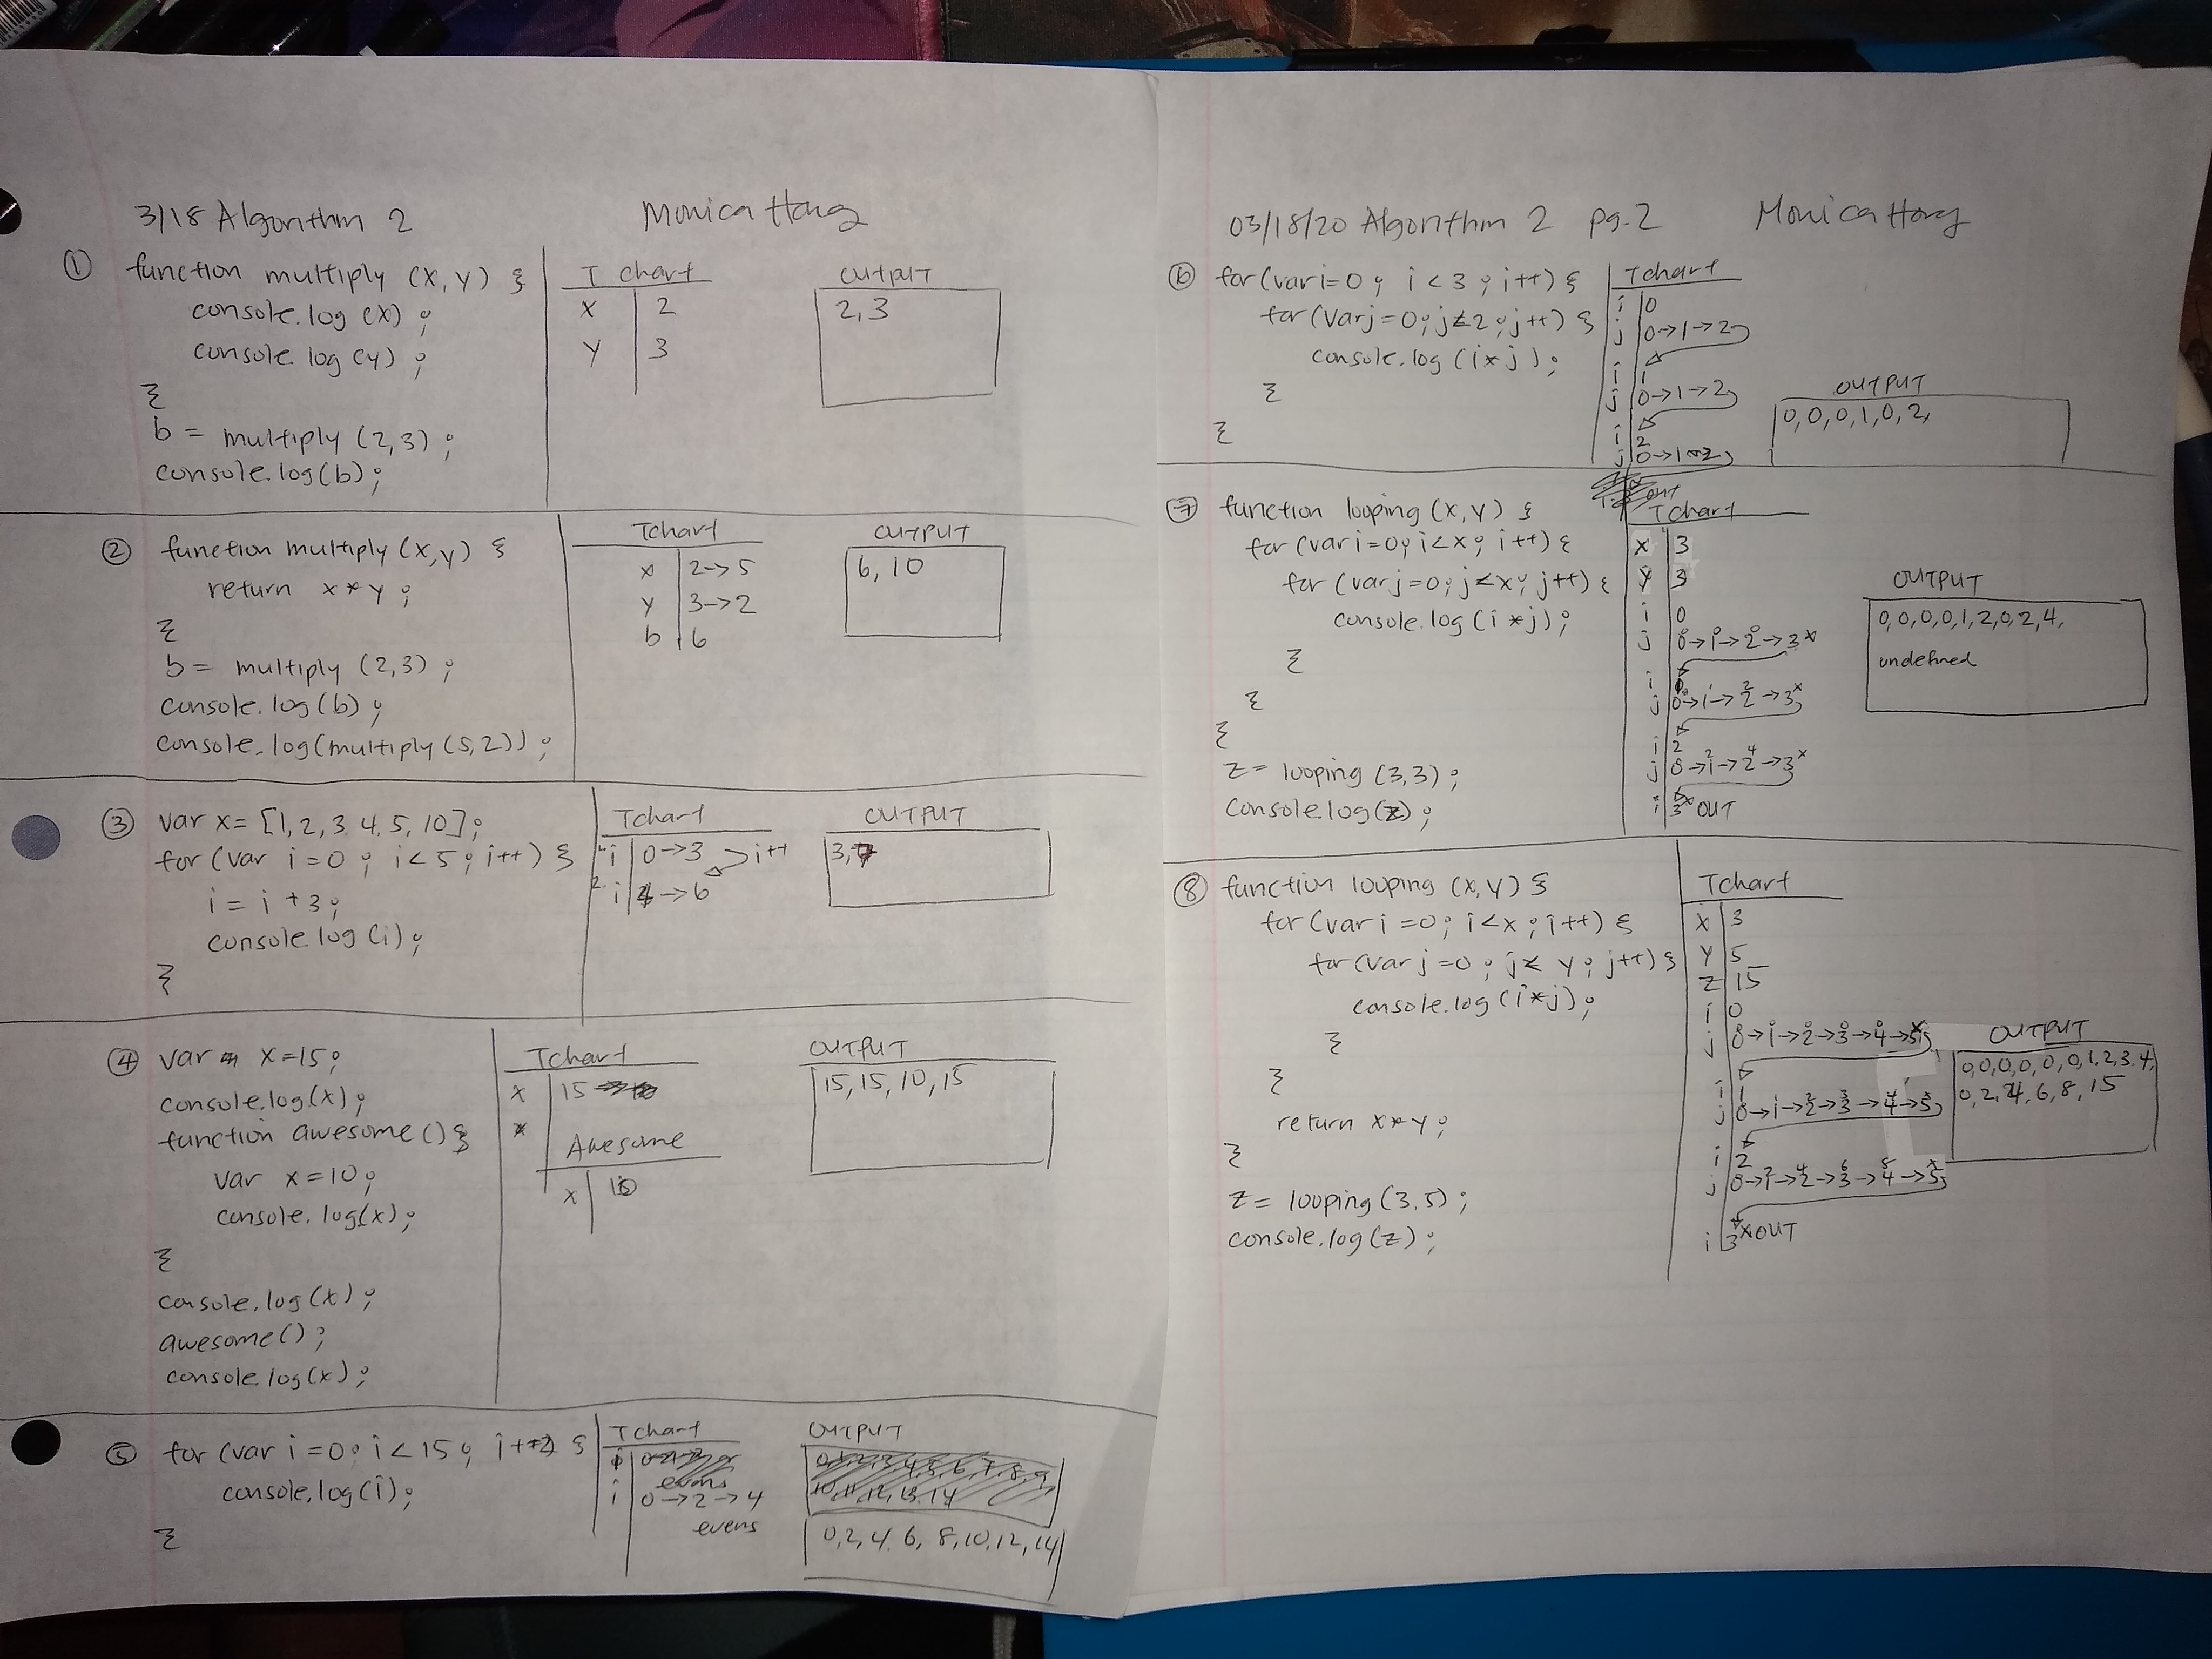 3/18 Algorithm 2 Monica Hong
① function multiply (x,y) {
console.log (x) ;
console.log (y) ;
}
b = multiply (2,3) ;
console.log(b) ;
T chart
x 2
y 3
OUTPUT
2,3
② function multiply (x,y) {
return x*y ;
}
b = multiply (2,3) ;
console.log(b) ;
console.log(multiply (5,2)) ;
Tchart
x 2→5
y 3→2
b 6
OUTPUT
6, 10
③ var x= [1,2,3,4,5,10];
for (var i=0 ; i<5 ; i++) {
i = i +3 ;
console.log (i) ;
}
Tchart
1. i 0→3 i++
2. i 4→6
OUTPUT
3,
④ var x=15;
console.log(x) ;
function awesome () {
var x=10 ;
console.log(x) ;
}
console.log(x) ;
awesome() ;
console.log(x) ;
Tchart
x 15
Awesome
x 10
OUTPUT
15,15,10,15
⑤ for (var i=0 ; i<15 ; i+2) {
console.log(i) ;
}
Tchart
evens
i 0→2→4
evens
OUTPUT
0,1,2,3,4,5,6,7,8,9
10,11,12,13,14
0,2,4,6,8,10,12,14
03/18/20 Algorithm 2 pg.2 Monica Hong
⑥ for(var i=0 ; i<3 ; i++) {
for(var j=0 ; j<2 ; j++) {
console.log (i*j) ;
}
}
Tchart
i 0
j 0→1→2
i 1
j 0→1→2
i 2
j 0→1→2
OUT
OUTPUT
0,0,0,1,0,2,
⑦ function looping (x,y) {
for (var i=0 ; i<x ; i++) {
for (var j=0 ; j<x ; j++) {
console.log (i*j) ;
}
}
}
z= looping (3,3) ;
console.log(z) ;
Tchart
x 3
y 3
i 0
j 0→1→2→3x
i 1
j 0→1→2→3x
i 2
j 0→1→2→3x
i 3x OUT
OUTPUT
0,0,0,0,1,2,0,2,4,
undefined
⑧ function looping (x,y) {
for (var i=0 ; i<x ; i++) {
for (var j=0 ; j< y ; j++) {
console.log (i*j) ;
}
}
return x*y ;
}
z= looping (3,5) ;
console.log(z) ;
Tchart
x 3
y 5
z 15
i 0
j 0→1→2→3→4→5
i 1
j 0→1→2→3→4→5
i 2
j 0→1→2→3→4→5
i 3x OUT
OUTPUT
0,0,0,0,0,0,1,2,3,4,
0,2,4,6,8,15